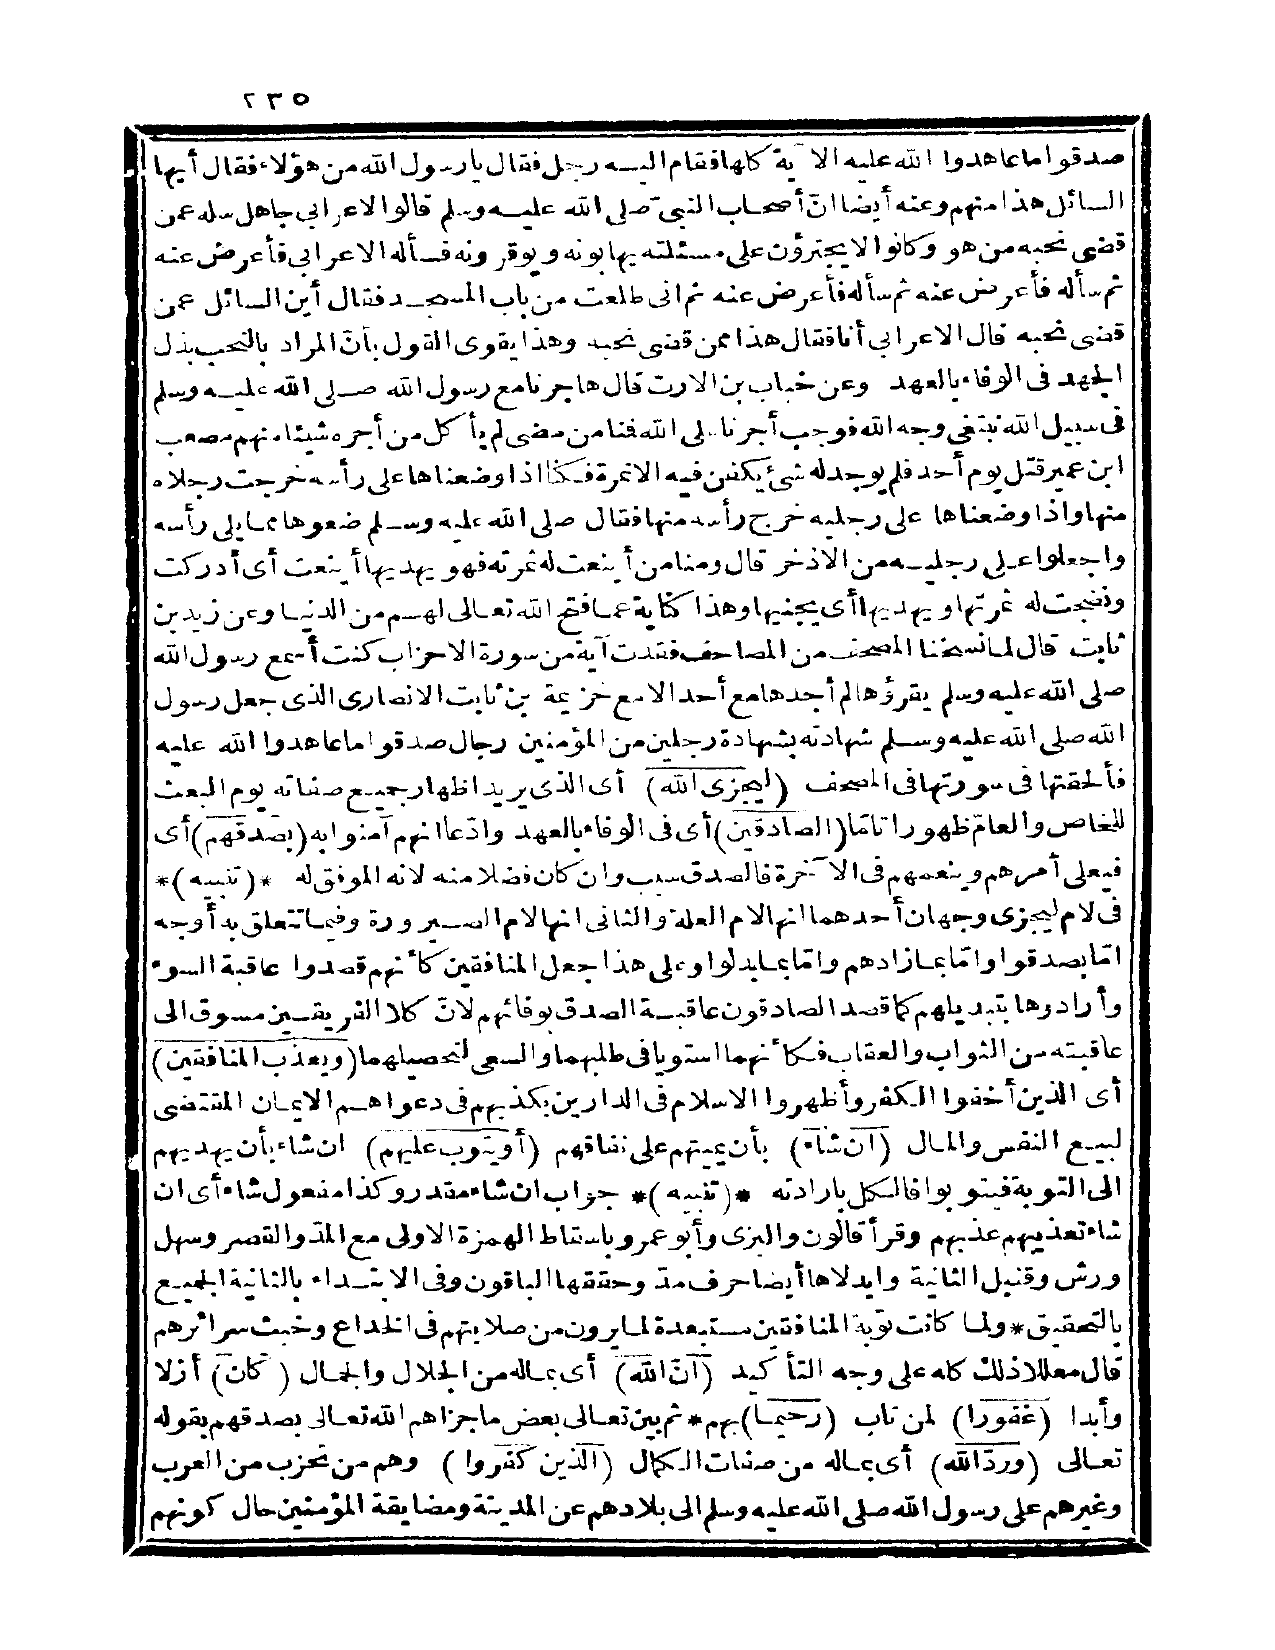 ٢٣٥
صدقوا ما عاهدوا الله عليه الآية كلها فقام اليه رجل فقال يا رسول الله من هؤلاء فقال أيها
السائل هذا منهم وعنه أيضا انّ أصحاب النبي صلى الله عليه وسلم قالوا لاعرابي جاهل سله عمن
قضى نحبه من هو وكانوا لا يجترؤن على مسئلته يهابونه ويوقرونه فسأله الاعرابي فأعرض عنه
ثم سأله فأعرض عنه ثم سأله فأعرض عنه ثم اني طلعت من باب المسجد فقال أين السائل عمن
قضى نحبه قال الاعرابي أنا فقال هذا ممن قضى نحبه وهذا يقوى القول بأنّ المراد بالنحب بذل
الجهد فى الوفاء بالعهد وعن خباب بن الارت قال هاجرنا مع رسول الله صلى الله عليه وسلم
فى سبيل الله نبتغى وجه الله فوجب أجرنا على الله فمنا من مضى لم يأكل من أجره شيئا منهم مصعب
ابن عمير قتل يوم أحد فلم يوجد له شئ يكفن فيه الا نمرة فكنا اذا وضعناها على رأسه خرجت رجلاه
منها واذا وضعناها على رجليه خرج رأسه منها فقال صلى الله عليه وسلم ضعوها مما يلى رأسه
واجعلوا على رجليه من الاذخر قال ومنا من أينعت له ثمرته فهو يهديها أينعت أى أدركت
ونضجت له ثمرتها ويهديها أى يجنيها وهذا كناية عما فتح الله تعالى لهم من الدنيا وعن زيد بن
ثابت قال لما نسخنا المصحف من المصاحف فقدت آية من سورة الاحزاب كنت أسمع رسول الله
صلى الله عليه وسلم يقرؤها لم أجدها مع أحد الا مع خزيمة بن ثابت الانصارى الذى جعل رسول
الله صلى الله عليه وسلم شهادته بشهادة رجلين من المؤمنين رجال صدقوا ما عاهدوا الله عليه
فألحقتها فى سورتها فى المصحف (ليجزى الله) أى الذى يريد اظهار جميع صفاته يوم البعث
للخاص والعامّ ظهورا تامّا (الصادقين) أى فى الوفاء بالعهد وادّعا انهم آمنوا به (بصدقهم) أى
فيعلى أمرهم وينعمهم فى الآخرة فالصدق سبب وان كان فضلا منه لانه الموفق له *(تنبيه)*
فى لام ليجزى وجهان أحدهما انها لام العلة والثانى انها لام الصيرورة وفيما تتعلق به أوجه
امّا بصدقوا وامّا بما زادهم وامّا بما بدلوا وعلى هذا جعل المنافقين كأنهم قصدوا عاقبة السوء
وأرادوها بتبديلهم كما قصد الصادقون عاقبة الصدق بوفائهم لانّ كلا الفريقين مسوق الى
عاقبته من الثواب والعقاب فكأنهما استويا فى طلبهما والسعى لتحصيلهما (ويعذب المنافقين)
أى الذين أخفوا الكفر وأظهروا الاسلام فى الدارين بكذبهم فى دعواهم الايمان المقتضى
لبيع النفس والمال (ان شاء) بأن يميتهم على نفاقهم (أو يتوب عليهم) ان شاء بأن يهديهم
الى التوبة فيتوبوا فالكل بارادته *(تنبيه)* جواب ان شاء مقدر وكذا مفعول شاء أى ان
شاء تعذيبهم عذبهم وقرأ قالون والبزى وأبو عمرو باسقاط الهمزة الاولى مع المدّ والقصر وسهل
ورش وقنبل الثانية وابدلاها أيضا حرف مدّ وحققها الباقون وفى الابتداء بالثانية الجميع
بالتحقيق * ولما كانت توبة المنافقين مستبعدة لما يرون من صلابتهم فى الخداع وخبث سرائرهم
قال معللا ذلك كله على وجه التأكيد (انّ الله) أى بماله من الجلال والجمال (كان) أزلا
وأبدا (غفورا) لمن تاب (رحيما) بهم * ثم بين تعالى بعض ما جزاهم الله تعالى بصدقهم بقوله
تعالى (وردّ الله) أى بماله من صفات الكمال (الذين كفروا) وهم من تحزب من العرب
وغيرهم على رسول الله صلى الله عليه وسلم الى بلادهم عن المدينة ومضايقة المؤمنين حال كونهم